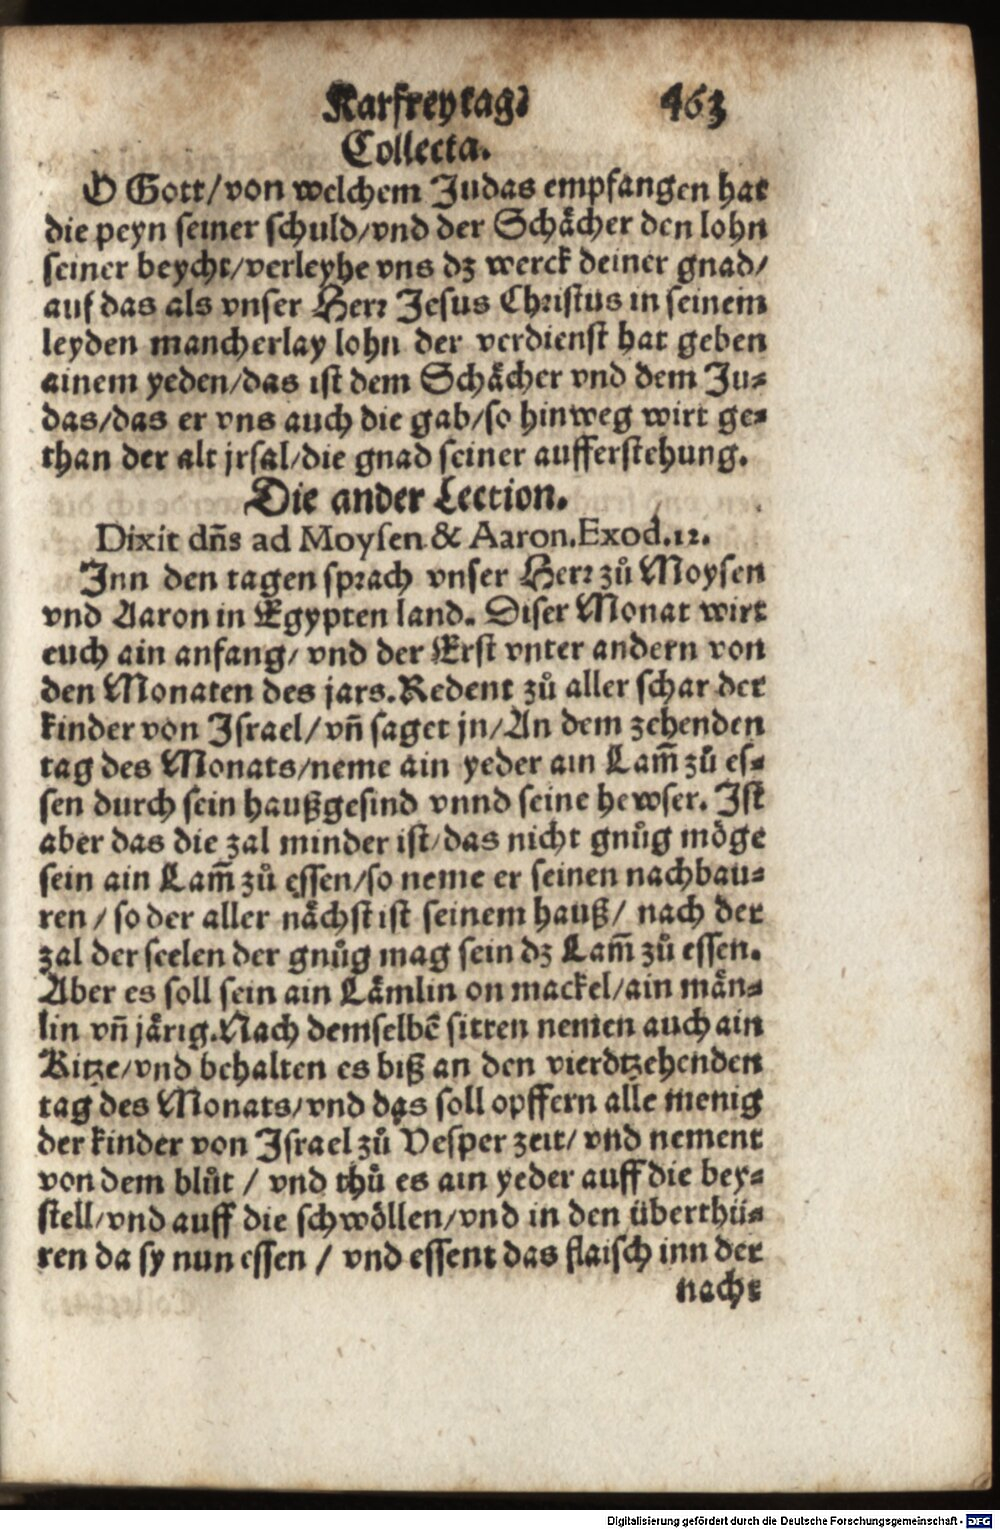 Karfreytag. 463
Collecta.
O Gott/von welchem Judas empfangen hat
die peyn seiner schuld/vnd der Schächer den lohn
seiner beycht/verleyhe vns dz werck deiner gnad/
auf das als vnser Herr Jesus Christus in seinem
leyden mancherlay lohn der verdienst hat geben
ainem yeden/das ist dem Schächer vnd dem Ju-
das/das er vns auch die gab/so hinweg wirt ge-
than der alt jrsal/die gnad seiner aufferstehung.
Die ander Lection.
Dixit dñs ad Moysen & Aaron. Exod. 12.
Inn den tagen sprach vnser Herr zů Moysen
vnd Aaron in Egypten land. Diser Monat wirt
euch ain anfang/ vnd der Erst vnter andern von
den Monaten des jars. Redent zů aller schar der
kinder von Israel/ vñ saget jn/ An dem zehenden
tag des Monats/neme ain yeder ain Lam̃ zů es-
sen durch sein haußgesind vnnd seine hewser. Ist
aber das die zal minder ist/das nicht gnůg möge
sein ain Lam̃ zů essen/so neme er seinen nachbau-
ren / so der aller nächst ist seinem hauß/ nach der
zal der seelen der gnůg mag sein dz Lam̃ zů essen.
Aber es soll sein ain Lämlin on mackel/ain män-
lin vñ järig. Nach demselbẽ sitten nemen auch ain
Kitze/vnd behalten es biß an den vierdtzehenden
tag des Monats/vnd das soll opffern alle menig
der kinder von Israel zů Vesper zeit/ vnd nement
von dem blůt / vnd thů es ain yeder auff die bey-
stell/vnd auff die schwöllen/vnd in den überthü-
ren da sy nun essen / vnd essent das flaisch inn der
nacht
Digitalisierung gefördert durch die Deutsche Forschungsgemeinschaft - DFG